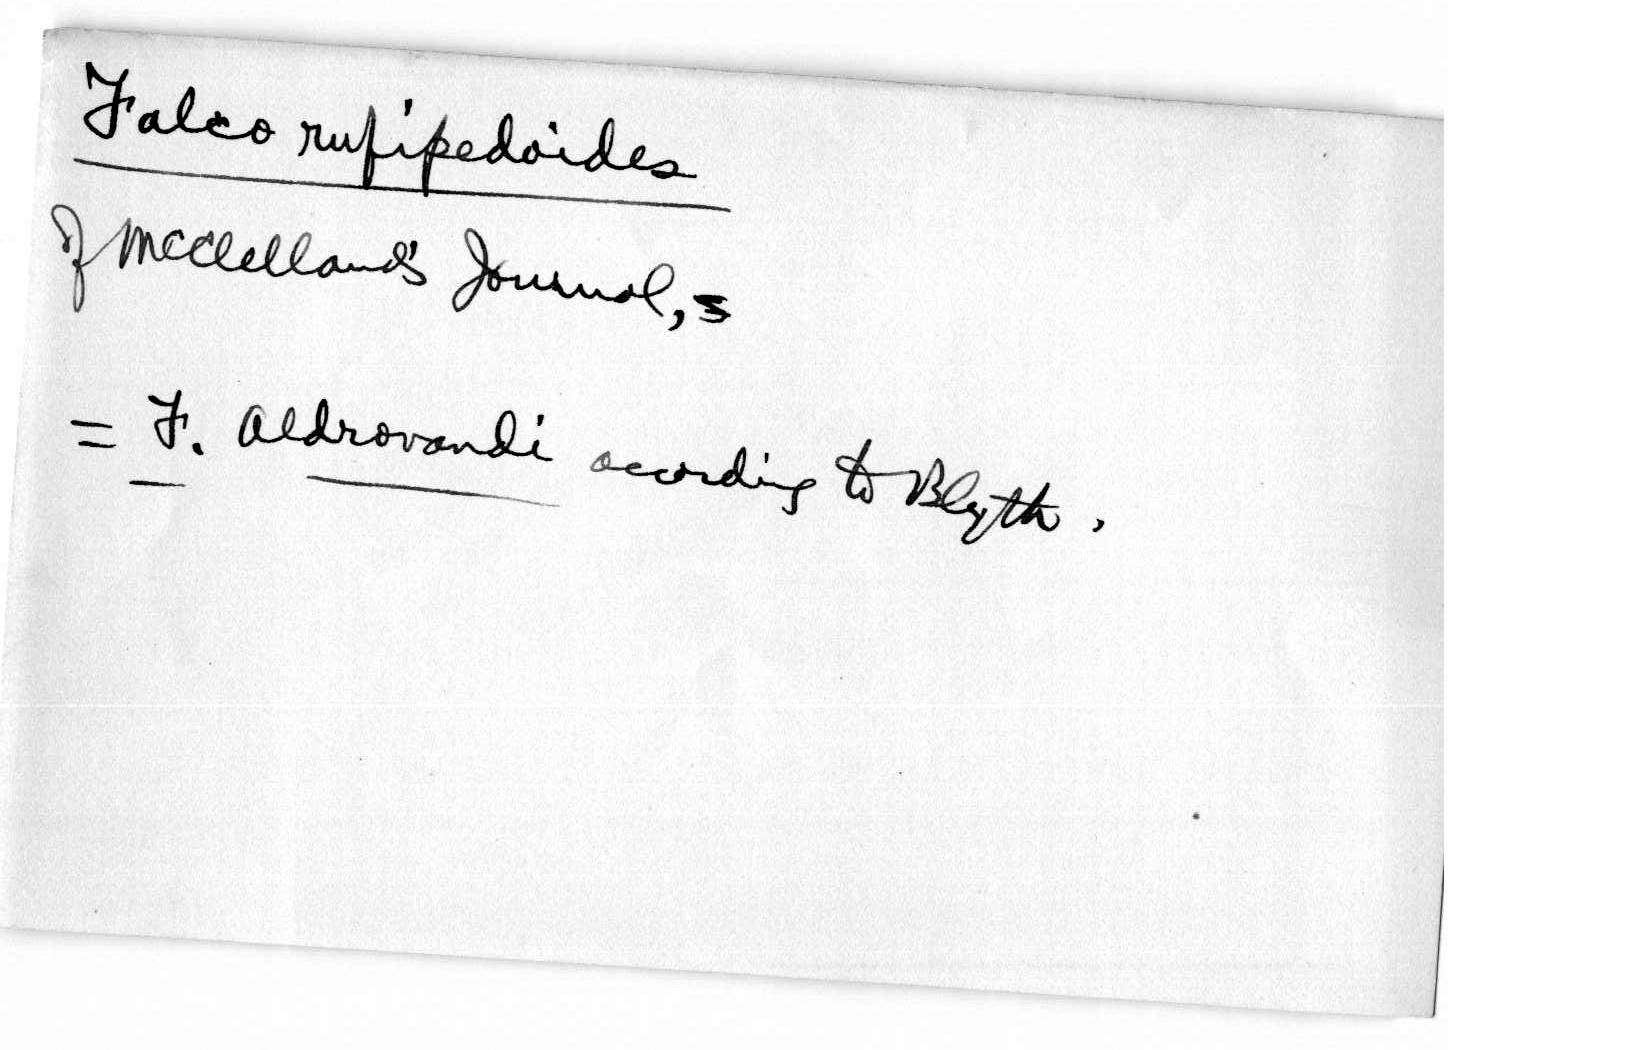 Falco rufipedoides
of McClelland's Journal, 3
= F. aldrovandi acording to Blyth.